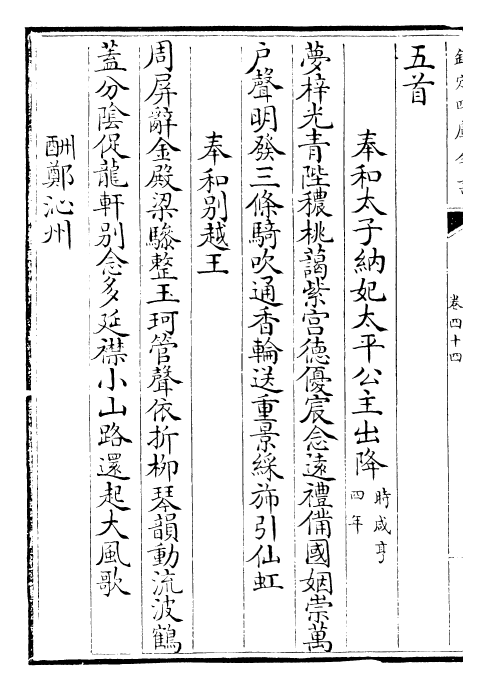 欽定四庫全書
卷四十四
五首
奉和太子納妃太平公主出降時咸亨四年
夢梓光青陛穠桃藹紫宫德優宸念遠禮備國姻崇萬
户聲明發三條騎吹通香輪送重景綵斾引仙虹
奉和别越王
周屏辭金殿梁驂整玉珂管聲依折柳琴韻動流波鶴
蓋分陰促龍軒别念多延襟小山路還起大風歌
酬鄭沁州